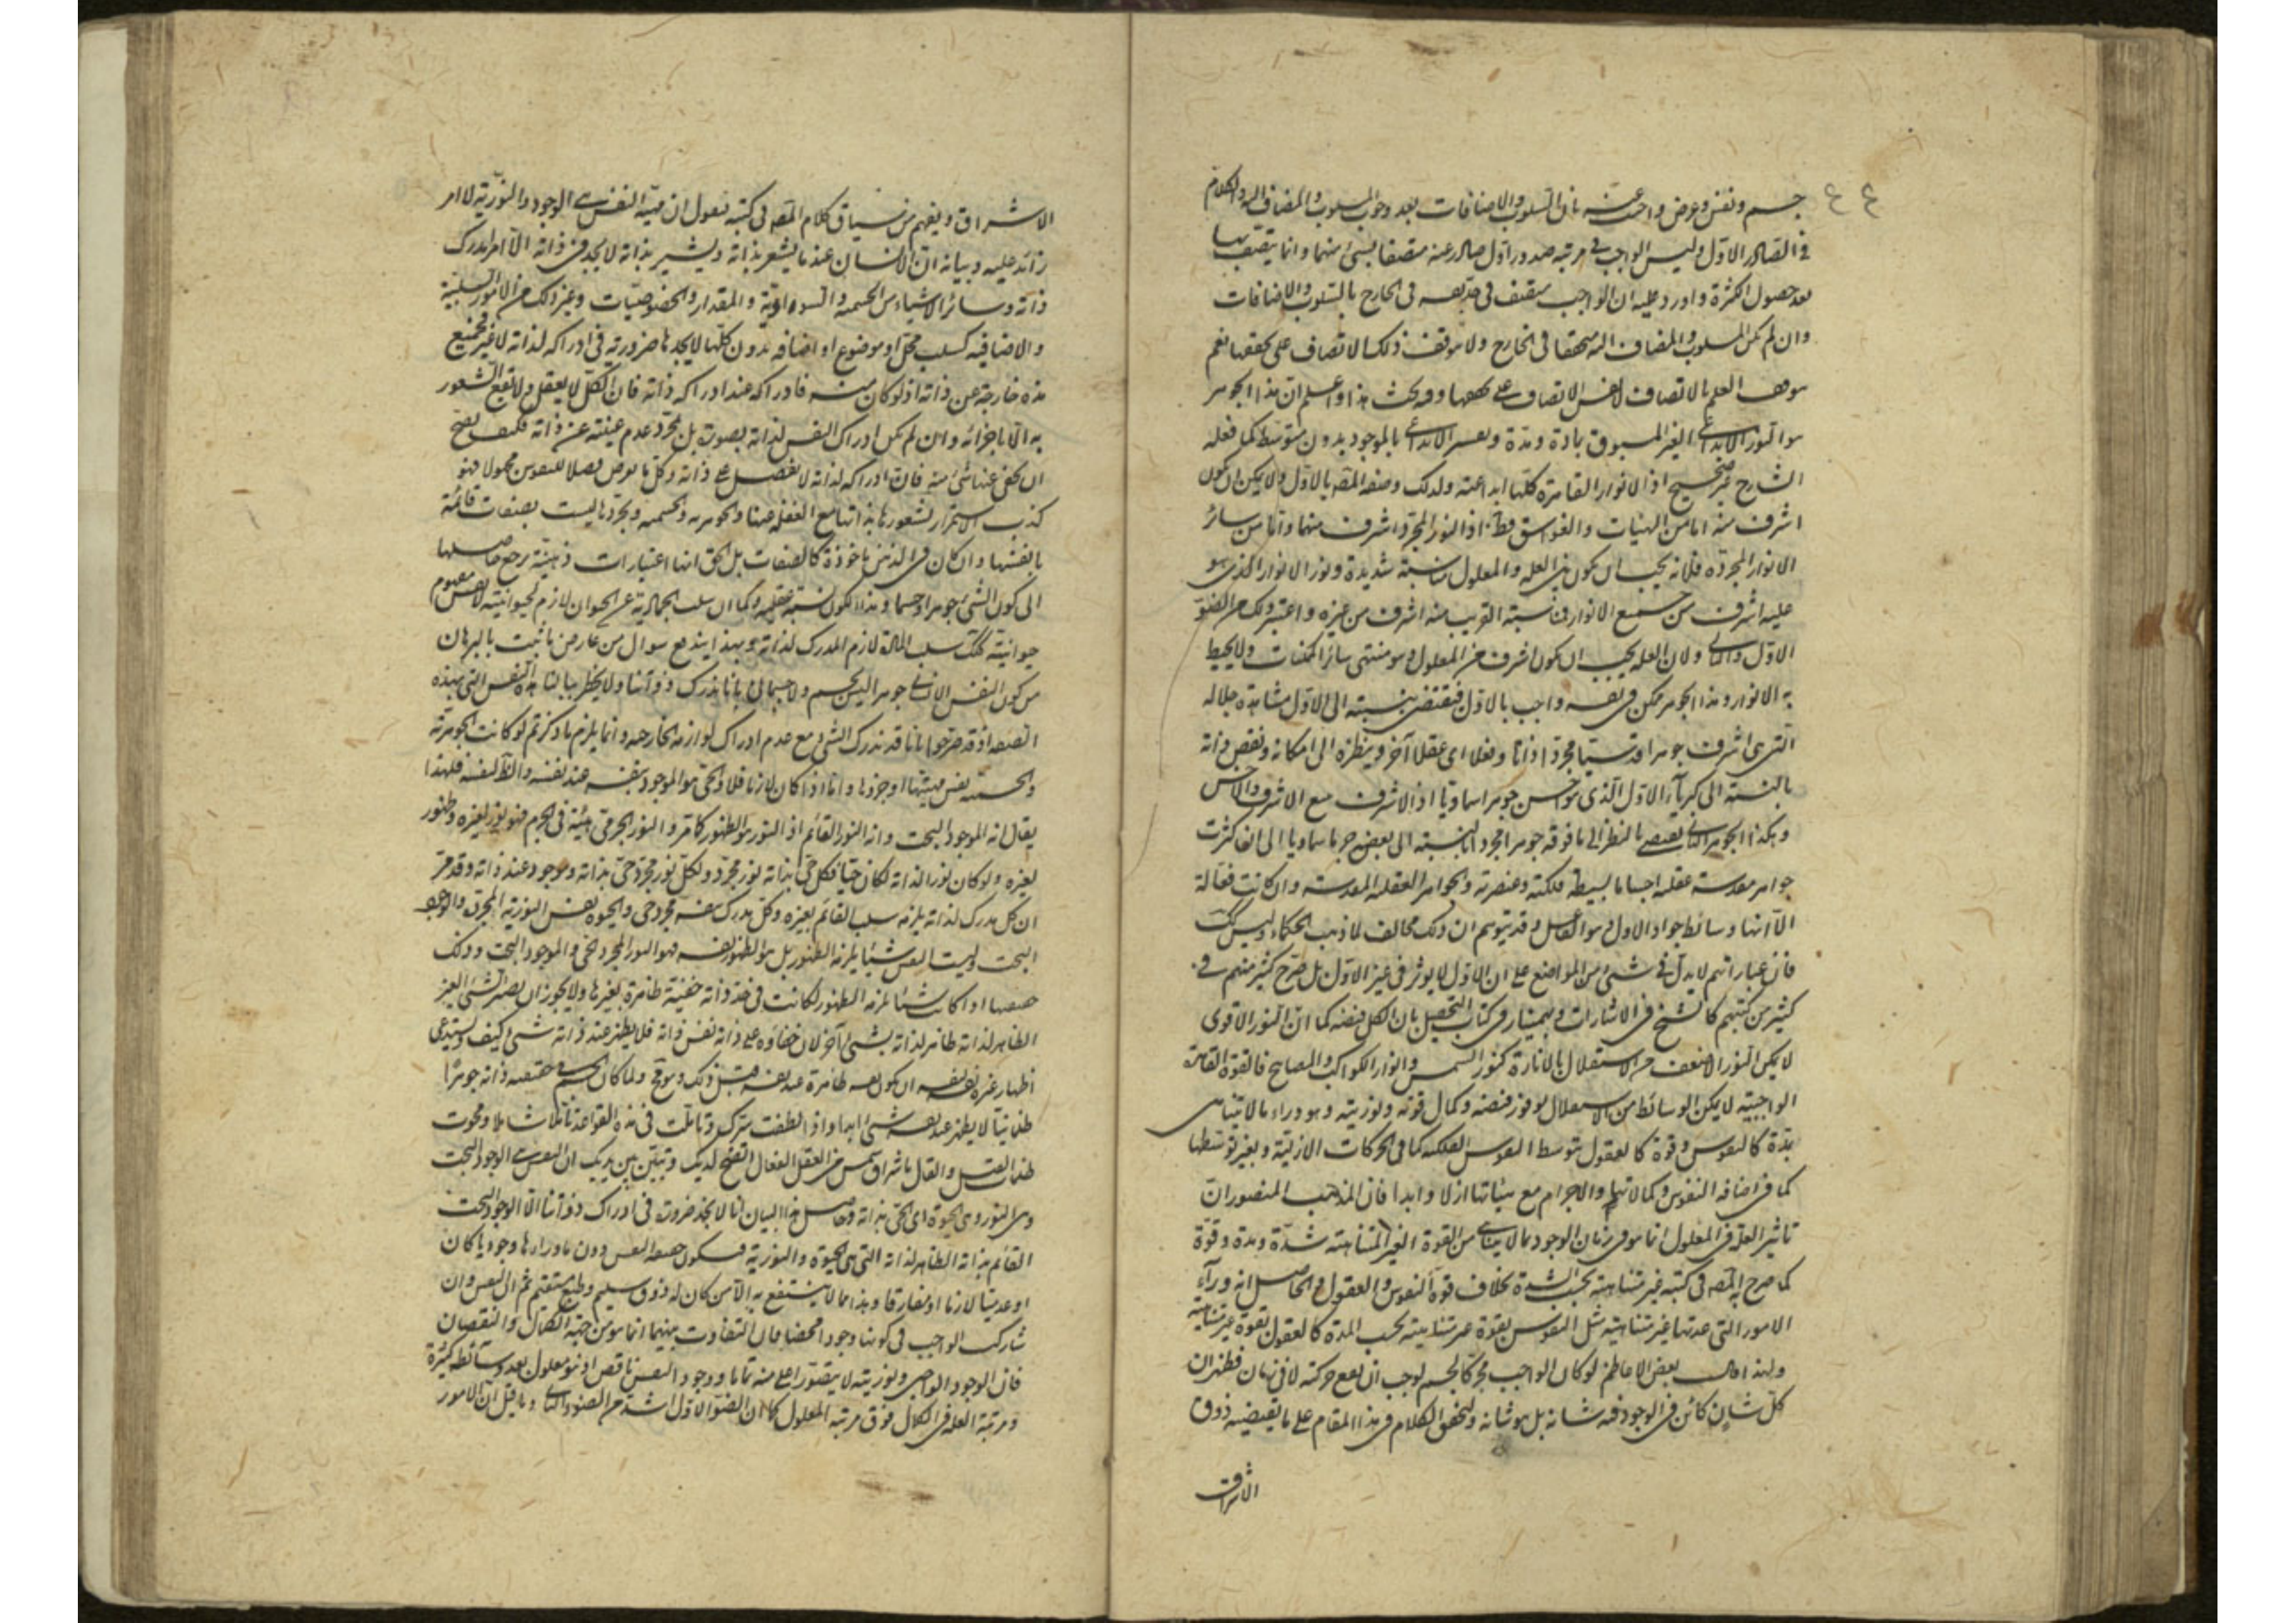 ٤٤
جسم ونفس وعرض واجيب عنه بان السلوب والاضافات بعد وجود المسلوب والمضاف اليه والكلام
في الصادر الاول وليس الواجب في مرتبة صدور اول صادر عنه متصفا بشئ منهما وانما يتصف بها
بعد حصول الكثرة واورد عليه ان الواجب متصف في حد نفسه في الخارج بالسلوب والاضافات
وان لم يكن المسلوب والمضاف اليه متحققا في الخارج ولا يتوقف ذلك الاتصاف على تحققها نعم
يتوقف العلم بالاتصاف لا نفس الاتصاف على تحققها وفيه بحث هذا واعلم ان هذا الجوهر
هو النور الابداعي الغير المسبوق بمادة ومدة وتفسير الابداعي بالموجود بدون متوسط كما فعله
الشارح غير صحيح اذ الانوار القاهرة كلها ابداعية ولذلك وصفه المصـ بالاول ولا يمكن ان يكون
اشرف منه اما من الهيئات والغواسق فظ اذ النور المجرد اشرف منها واما من سائر
الانوار المجردة فلانه يجب ان يكون بين العلة والمعلول مناسبة شديدة ونور الانوار الذي هو
علية اشرف من جميع الانوار فنسبة القريب منه اشرف من غيره واعتبر ذلك من الضوء
الاول والثاني ولان العلة يجب ان يكون اشرف من المعلول وهو منتهى سائر الممكنات ولا يحيط
به الانوار وهذا الجوهر ممكن في نفسه واجب بالاول فيقتضي بنسبته الى الاول مشاهدة جلاله
التي هي اشرف جوهرا قدسيا مجردا ذاتا وفعلا اى عقلا آخر وبنظره الى امكانه ونقص ذاته
بالنسبة الى كبرياء الاول الذي هو اخس جوهرا سماويا اذ الاشرف مع الاشرف والاخس
وهكذا الجوهر الثاني يقتضي بالنظر الى ما فوقه جوهرا مجردا بالنسبة الى بعض جرما سماويا الى ان كثرت
جواهر مقدسة عقلية اجساما بسيطة فلكية وعنصرية والجواهر العقلية المقدسة وان كانت فعالة
الا انها وسائط جود الاول وهو الفاعل وقد يتوهم ان ذلك مخالف لمذهب الحكماء وليس كك
فان عباراتهم لا يدل في شئ من المواضع على ان الاول لا يوثر في غير الاول بل صرح كثير منهم في
كثير من كتبهم كالشيخ في الاشارات وبهمنيار في كتاب التحصيل بان الكل فيضه كما ان النور الاقوى
لا يمكن النور الاضعف من الاستقلال بالانارة كنور الشمس وانوار الكواكب والمصابيح فالقوة القاهرة
الواجبية لا يمكن الوسائط من الاستقلال لوفور فيضه وكمال قوته ونوريته وهو وراء ما لا يتناهى
بمدة كالنفوس وقوة كالعقول بتوسط النفوس الفلكية كما في الحركات الازلية وبغير توسطها
كما في اضافة النفوس وكمالاتها والاجرام مع هيئاتها ازلا وابدا فان المذهب المنصور ان
تاثير العلة في المعلول انما هو في زمان الوجود بما لا يتناهى من القوة الغير المتناهية شدة ومدة وقوة
كما صرح به المصـ في كتبه غير متناهية بحسب الشدة بخلاف قوة النفوس والعقول والحاصل انه وراء
الامور التي عدتها غير متناهية مثل النفوس بقوة غير متناهية بحسب المدة كالعقول بقوة غير متناهية
ولهذا قال بعض الاعاظم لو كان الواجب محركا لجسم لوجب ان يقع حركته لا في زمان فظهر ان
كل شان كائن في الوجود فيه شانه بل هو شانه ولنحقق الكلام في هذا المقام على ما يقتضيه ذوق
الاشراق
الاشراق ويفهم من سياق كلام المصـ في كتبه فنقول ان مهية النفس هي الوجود والنورية لا امر
زائد عليه وبيانه ان الانسان عند ما يشعر بذاته ويشير بذاته لا يجد في ذاته الا امرا يدرك
ذاته وسائر الاشياء من الجسمية والسوداوية والمقدار والخصوصيات وغير ذلك من الامور السلبية
والاضافية كسلب محل او موضوع او اضافة بدون كلها لا يجدها ضرورية في ادراكه لذاته لا غير فجميع
هذه خارجة عن ذاته اذ لو كان منه فادراكه عند ادراكه ذاته فان الكل لا يعقل ولا يقع الشعور
به الا باجزائه وان لم يكن ادراك النفس لذاته بصورة بل بمجرد عدم غيبته عن ذاته فكيف يصح
ان يخفى عنها شئ منه فان ادراكه لذاته لا يفضل على ذاته وكل ما يعرض فصلا للنفوس مجهولا فهو
كذب الاستمرار لشعورها بذاتها مع الغفلة عنها والجوهرية والجسمية وتجردها ليست بصفات قائمة
بانفسها وان كان في الذهن ماخوذة كالصفات بل الحق انها اعتبارات ذهنية رجع حاصلها
الى كون الشئ جوهرا او جسما وهذا الكون نسبة عقلية وكما ان سلب الجمادية عن الحيوان لازم لحيوانيته لا نفس مفهوم
حيوانيته كك سلب المادة لازم المدرك لذاته وبهذا يندفع سوال من عارض ما ثبت بالبرهان
من كون النفس الانساني جوهرا ليس بجسم ولا جسماني بانا ندرك ذواتنا ولا يخطر ببالنا هذه النفس التي بهذه
الصفة اذ قد صرحوا بانا قد ندرك الشئ مع عدم ادراك لوازمه الخارجة وانما يلزم ما ذكر ثم لو كانت الجوهرية
والجسمية نفس مهيتها او جزءها واما اذا كان لازما فلا والحق هو الموجود بنفسه عند نفسه والظ لنفسه فلهذا
يقال انه الموجود البحت وانه النور القائم اذ النور هو الظهور كما مر والنور الجرمي هيئة في الجرم فهو نور لغيره وظهور
لغيره ولو كان نورا لذاته لكان حيا فكل حي بذاته نور مجرد ولكل نور مجرد حي بذاته وموجود عند ذاته وقد مر
ان كل مدرك لذاته يلزمه سلب القائم بغيره وكل مدرك نفسه مجرد حي والحيوة نفس النورية المجرد والوجود
البحت وليست النفس شيئا يلزمه الظهور بل هو الظهور لنفسه فهو النور المجرد الحي والموجود البحت وذلك
حقيقتها اذا كانت شيئا يلزمه الظهور لكانت في حد ذاته خفية ظاهرة لغيرها ولا يجوز ان يصير الشئ الغير
الظاهر لذاته ظاهر لذاته بشئ آخر لان خفاؤه على ذاته نفس ذاته فلا يظهر عند ذاته شئ كيف ويستدعى
اظهار غيره لنفسه ان يكون نفسه ظاهرة عند نفسه قبل ذلك وهو مح ولما كان الجسم في حقيقته ذاته جوهرا
ظلمانيا لا يظهر عند نفسه شئ ابدا واذا لطفت سرك وتاملت في هذه القواعد تاملا شاملا ومحوت
ظلمات القيل والقال باشراق شمس العقل الفعال اتضح لديك وتبين بين يديك ان النفس هي الوجود البحت
وهى النور وهى الحيوة اى الحي بذاته وحاصل هذا البيان انا لا نجد ضرورة في ادراك ذواتنا الا الوجود البحت
القائم بذاته الظاهر لذاته التي هي الحيوة والنورية فيكون حقيقة النفس دون ما وراءها وجوديا كان
او عدميا لازما او مفارقا وهذا مما لا ينتفع به الا من كان له ذوق سليم وطبع مستقيم ثم ان النفس وان
شارك الواجب في كونها وجودا محضا فان التفاوت بينهما انما هو من جهة الكمال والنقصان
فان الوجود الواجبي ونوريته لا يتصور اعلى منه تماما ووجود النفس ناقص اذ هو معلول بعد وسائط كثيرة
ومرتبة العلة في الكمال فوق مرتبة المعلول كما ان الضوء الاول اشد من الضوء الثاني وما قيل ان الامور